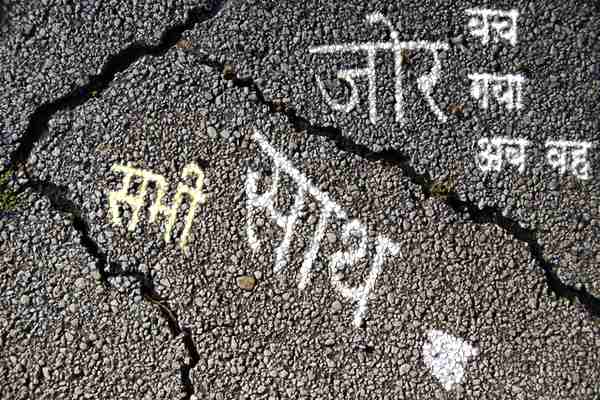 जोर
बच
गया
अब वह
सभी
साथ